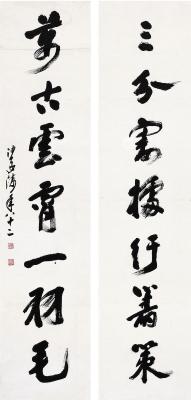 三分割據紆籌策
萬古雲霄一羽毛
年八十二